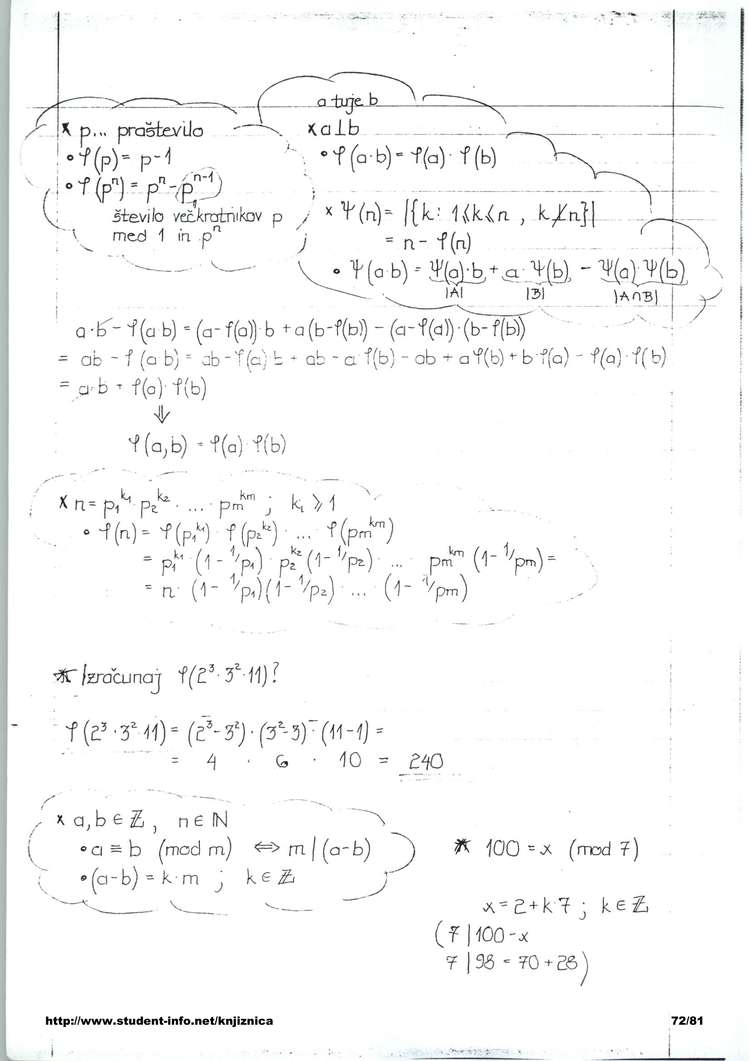 * p... praštevilo
• φ(p) = p-1
• φ(pⁿ) = pⁿ - pⁿ⁻¹
število večkratnikov p
med 1 in pⁿ
a tuje b
* a⊥b
• φ(a·b) = φ(a)·φ(b)
* Ψ(n) = |{k: 1≤k≤n , k⊥̸n}|
= n - φ(n)
• Ψ(a·b) = Ψ(a)·b + a·Ψ(b) - Ψ(a)·Ψ(b)
|A| |B| |A∩B|
a·b - φ(a·b) = (a-φ(a))·b + a(b-φ(b)) - (a-φ(a))·(b-φ(b))
= ab - φ(a·b) = ab - φ(a)·b + ab - a·φ(b) - ab + aφ(b) + b·φ(a) - φ(a)·φ(b)
= a·b + φ(a)·φ(b)
⇓
φ(a,b) = φ(a)·φ(b)
* n = p₁^k₁ · p₂^k₂ · ... · pm^km ; kᵢ ≥ 1
• φ(n) = φ(p₁^k₁)·φ(p₂^k₂)· ... φ(pm^km)
= p₁^k₁·(1 - 1/p₁)·p₂^k₂(1 - 1/p₂)· ... pm^km (1 - 1/pm) =
= n·(1 - 1/p₁)(1 - 1/p₂)· ... (1 - 1/pm)
* Izračunaj φ(2³·3²·11)?
φ(2³·3²·11) = (2³-3²)·(3²-3)·(11-1) =
= 4 · 6 · 10 = 240
* a,b ∈ ℤ, n ∈ ℕ
• a ≡ b (mod m) ⇔ m|(a-b)
• (a-b) = k·m ; k ∈ ℤ
* 100 = x (mod 7)
x = 2+k·7 ; k ∈ ℤ
(7 | 100-x
7 | 98 = 70+28)
http://www.student-info.net/knjiznica 72/81